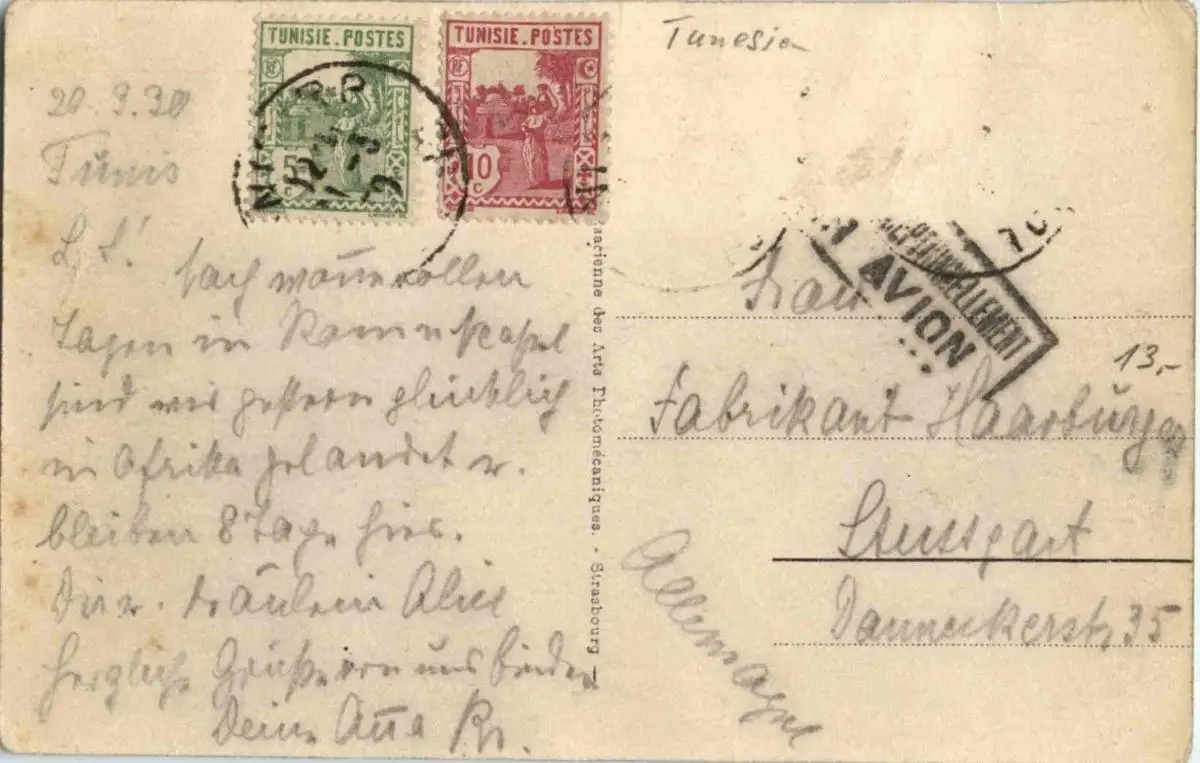 TUNISIE.POSTES
RF
5
c
TUNISIE.POSTES
RF
10
c
Tunesien
20.3.30
Tunis
L. L!
Nach wonnevollen
Tagen in
sind wir gestern glücklich
in Afrika gelandet u.
bleiben 8 Tage hier.
Dir u. Fräulein Alice
herzliche Grüße von uns beiden
Deine
sacienne des Arts Photomécaniques. - Strasbourg
AVION
Frau
13,-
Fabrikant Haarburger
Stuttgart
Danneckerstr, 35
Allemagne